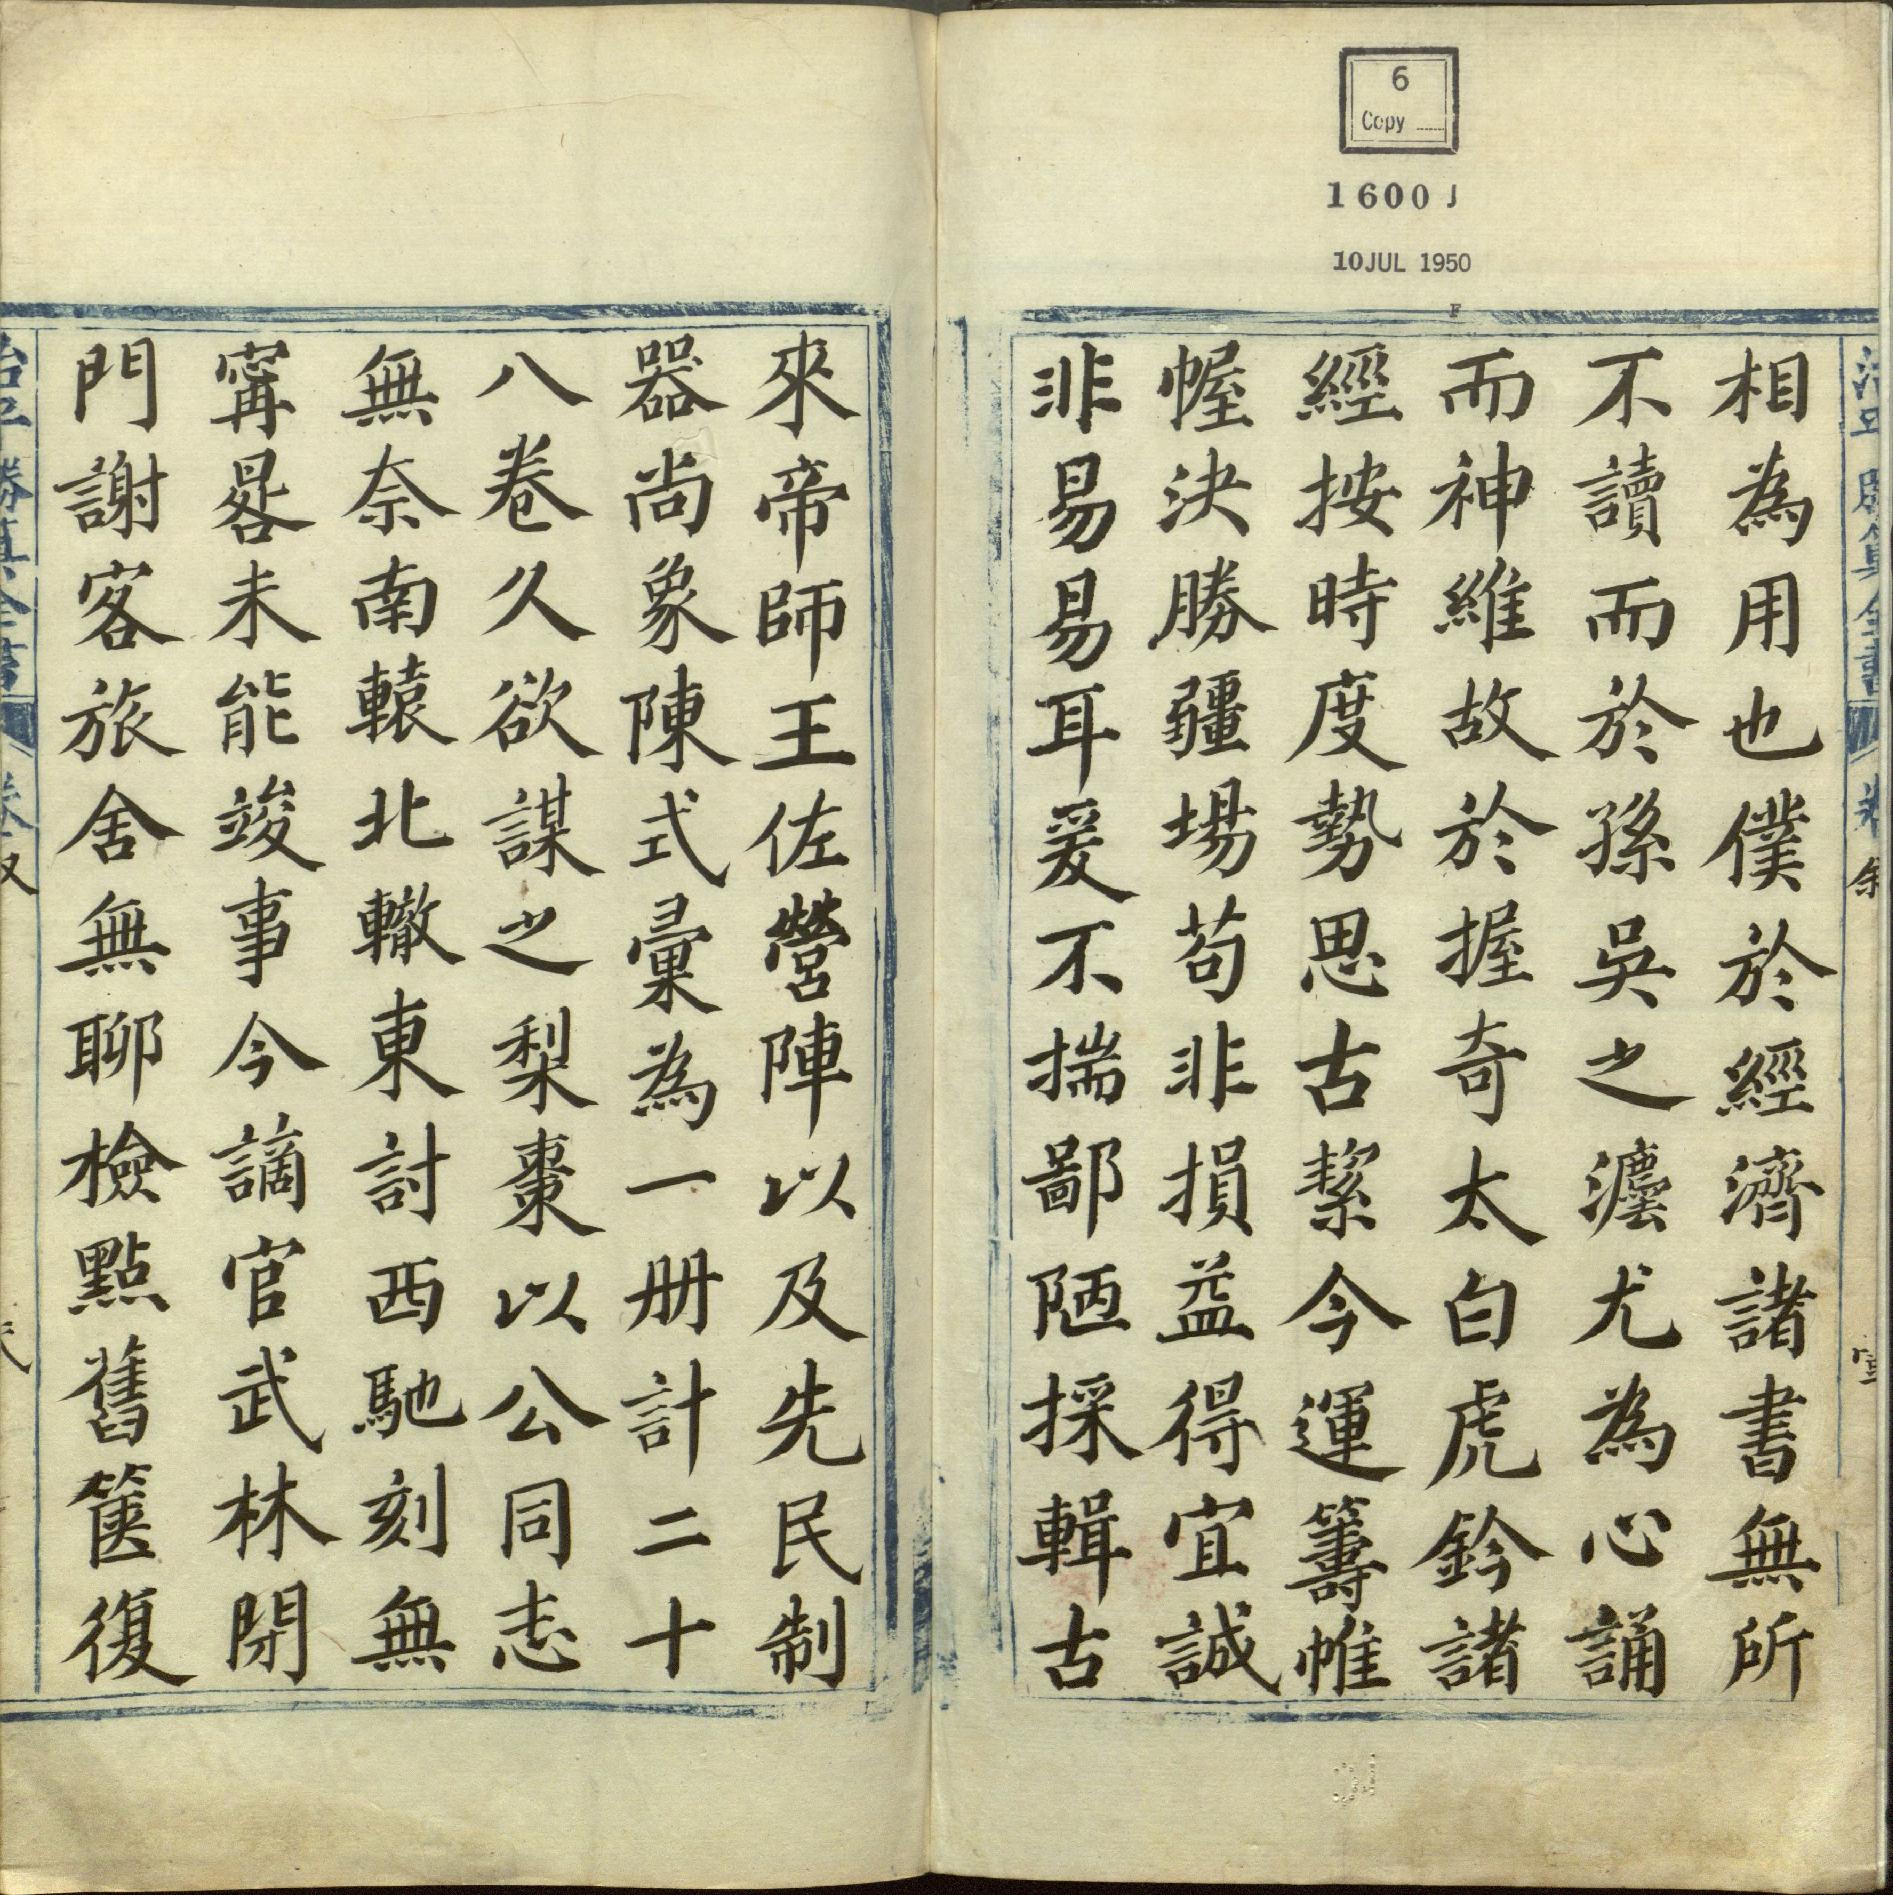 6
Copy
1600 J
10 JUL 1950
F
相為用也僕於經濟諸書無所
不讀而於孫吳之灋尤為心誦
而神維故於握奇太白虎鈐諸
經按時度勢思古絜今運籌帷
幄決勝疆場苟非損益得宜誠
非易易耳爰不揣鄙陋採輯古
來帝師王佐營陣以及先民制
器尚象陳式彚為一册計二十
八卷久欲謀之梨棗以公同志
無奈南轅北轍東討西馳刻無
寗晷未能竣事今謫官武林閉
門謝客旅舍無聊檢點舊篋復